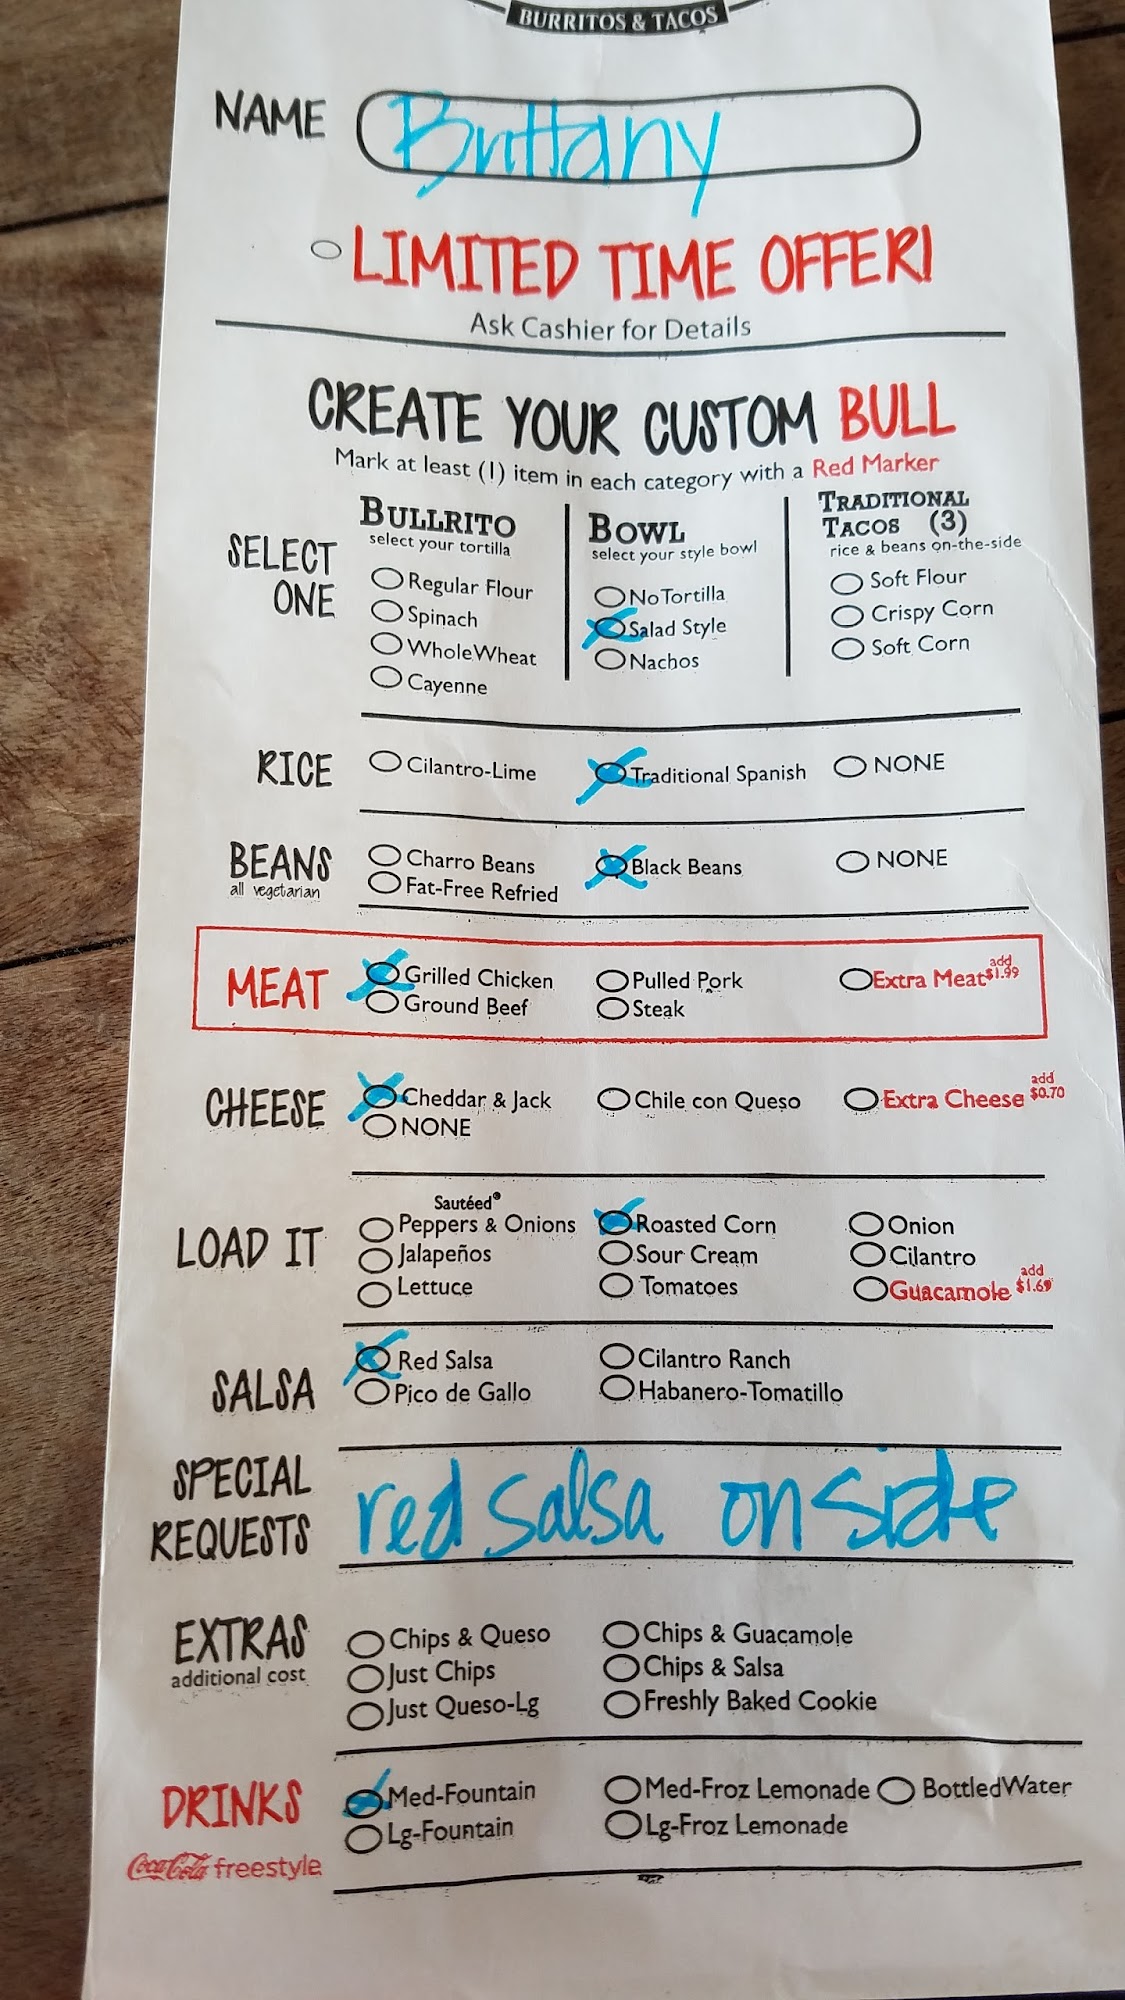 BURRITOS & TACOS
NAME Brittany
LIMITED TIME OFFER!
Ask Cashier for Details
CREATE YOUR CUSTOM BULL
Mark at least (1) item in each category with a Red Marker
SELECT ONE
BULLRITO
select your tortilla
Regular Flour
Spinach
WholeWheat
Cayenne
BOWL
select your style bowl
NoTortilla
Salad Style
Nachos
TRADITIONAL
TACOS (3)
rice & beans on-the-side
Soft Flour
Crispy Corn
Soft Corn
RICE
Cilantro-Lime Traditional Spanish NONE
BEANS
all vegetarian
Charro Beans Black Beans NONE
Fat-Free Refried
MEAT
Grilled Chicken Pulled Pork Extra Meat add $1.99
Ground Beef Steak
CHEESE
Cheddar & Jack Chile con Queso Extra Cheese add $0.70
NONE
LOAD IT
Sautéed
Peppers & Onions Roasted Corn Onion
Jalapeños Sour Cream Cilantro
Lettuce Tomatoes Guacamole add $1.69
SALSA
Red Salsa Cilantro Ranch
Pico de Gallo Habanero-Tomatillo
SPECIAL
REQUESTS
red salsa on side
EXTRAS
additional cost
Chips & Queso Chips & Guacamole
Just Chips Chips & Salsa
Just Queso-Lg Freshly Baked Cookie
DRINKS
Coca-Cola freestyle
Med-Fountain Med-Froz Lemonade BottledWater
Lg-Fountain Lg-Froz Lemonade